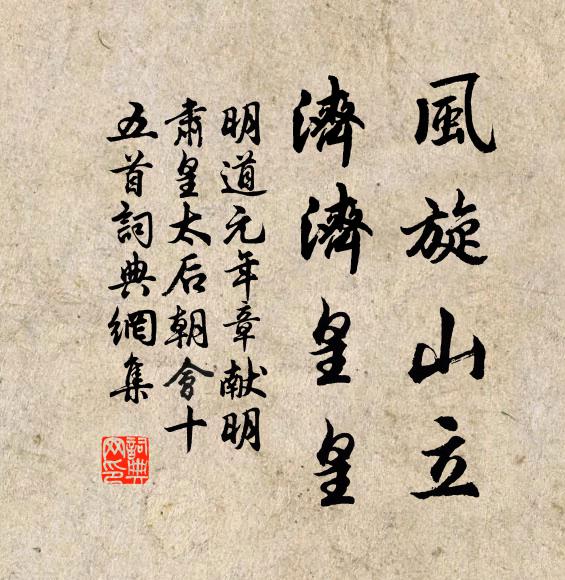 風旋山立
濟濟皇皇
明道元年章献明
肅皇太后朝會十
五首詞典網集
詞典网印